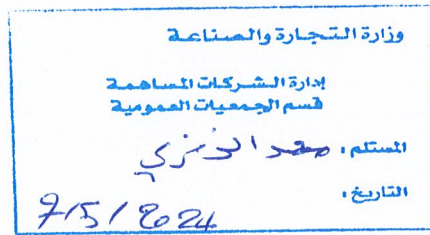 وزارة التجارة والصناعة
إدارة الشركات المساهمة
قسم الجمعيات العمومية
المستلم :
التاريخ :
7/5/2024